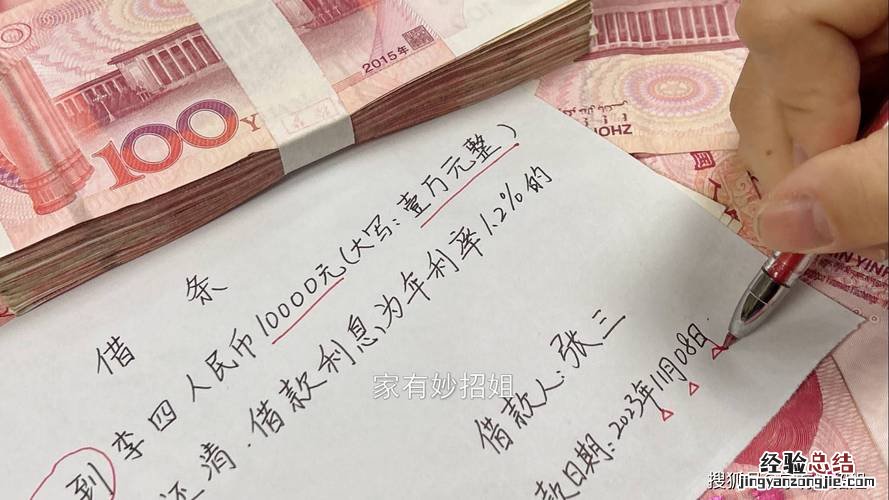 2015年
100
借 条
到李四人民币10000元(大写:壹万元整)
还清.借款利息为年利率1.2%的
借款人:张三
款日期:2023年11月08日
家有妙招姐
搜狐
经验总结
jingyanzongjie.com